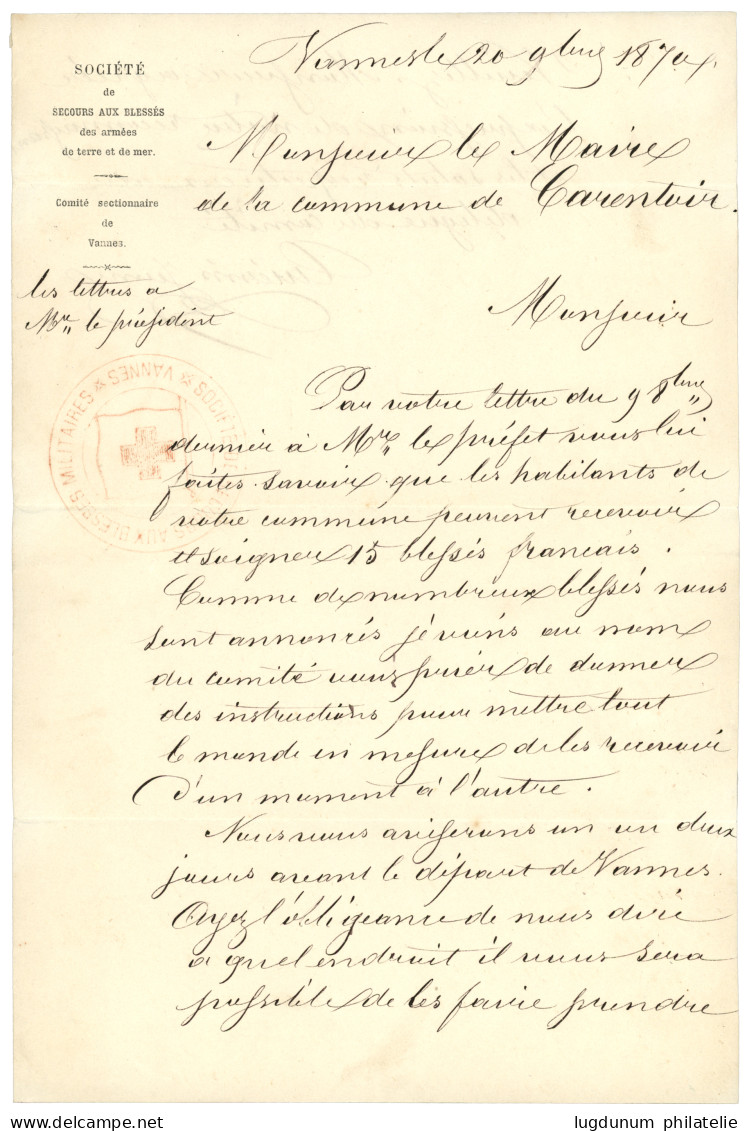 SOCIÉTÉ
de
SECOURS AUX BLESSÉS
des armées
de terre et de mer.
Comité sectionnaire
de
Vannes.
les lettres a
Mr. le président
Vannes le 20 9bre 1870
Monsieur le Maire
de la commune de Carentoir.
Monsieur
Par votre lettre du 9 8bre
dernier à Mr. le préfet vous lui
faites savoir que les habitants de
votre commune peuvent recevoir
et soigner 15 blessés francais.
Comme de nombreux blessés nous
sont annoncés je viens au nom
du comité vous prier de donner
des instructions pour mettre tout
le monde en mesure de les recevoir
d'un moment à l'autre.
Nous vous aviserons un ou deux
jours avant le départ de Vannes.
Ayez l'obligeance de nous dire
a quel endroit il vous sera
possible de les faire prendre
VANNES * SOCIÉTÉ AUX BLESSÉS MILITAIRES *
lugdunum philatelie